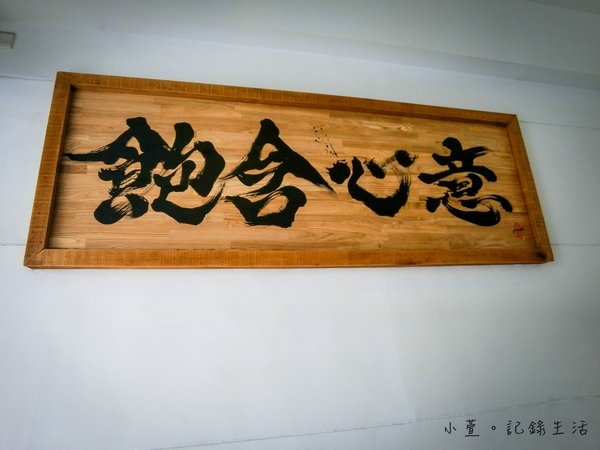 飽含心意
小萱。記錄生活